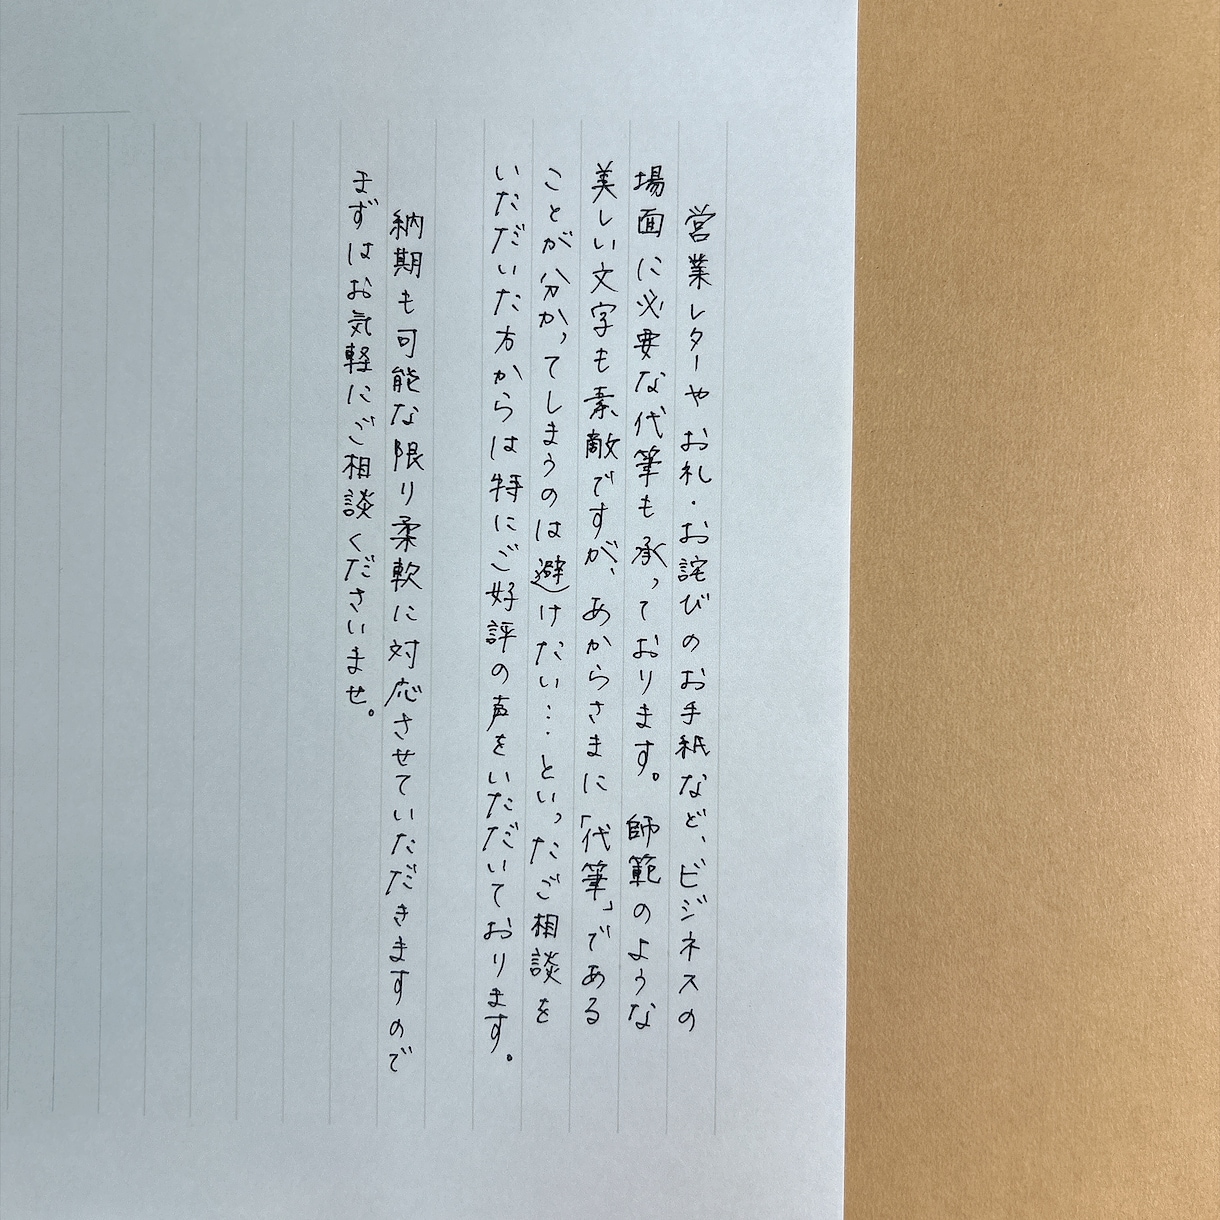 営業レターやお礼・お詫びのお手紙など、ビジネスの
場面に必要な代筆も承っております。師範のような
美しい文字も素敵ですが、あからさまに「代筆」である
ことが分かってしまうのは避けたい…といったご相談を
いただいた方からは特にご好評の声をいただいております。
納期も可能な限り柔軟に対応させていただきますので
まずはお気軽にご相談くださいませ。